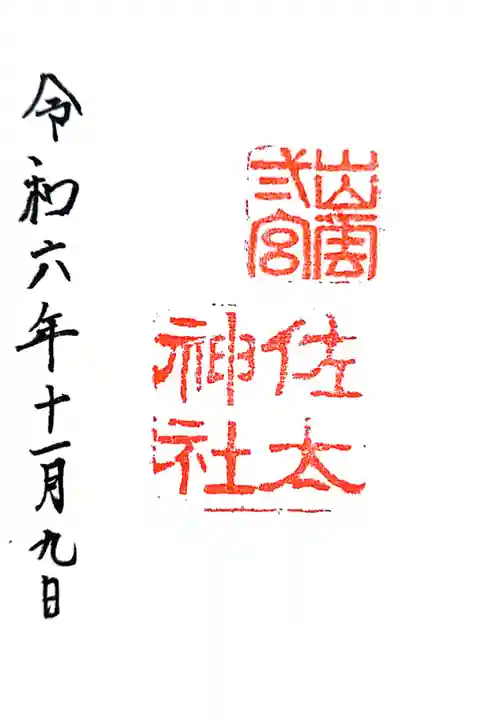 出雲
弍宮
佐太
神社
令和六年十一月九日